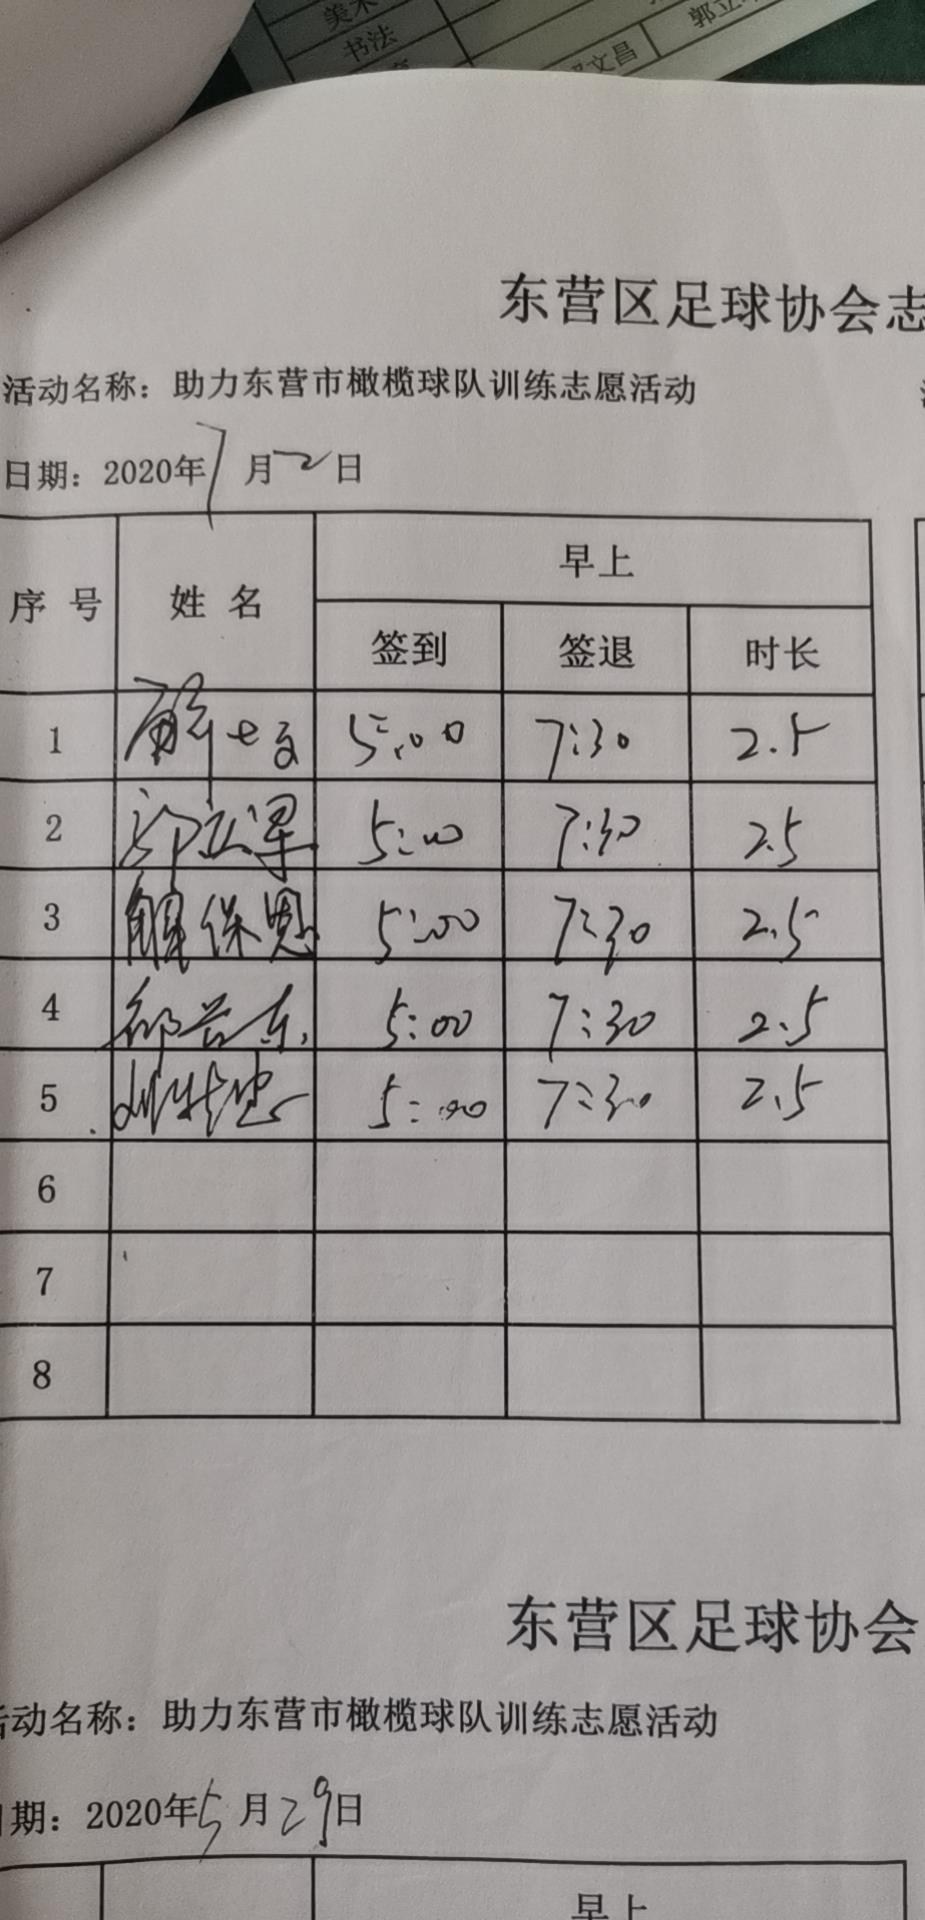 美术
书法
文昌
郭立
东营区足球协会志
活动名称：助力东营市橄榄球队训练志愿活动
日期：2020年7月2日
序号 姓名 早上
签到 签退 时长
1 5:00 7:30 2.5
2 5:00 7:30 2.5
3 解保恩 5:00 7:30 2.5
4 5:00 7:30 2.5
5 5:00 7:30 2.5
6
7
8
东营区足球协会
活动名称：助力东营市橄榄球队训练志愿活动
日期：2020年5月29日
早上